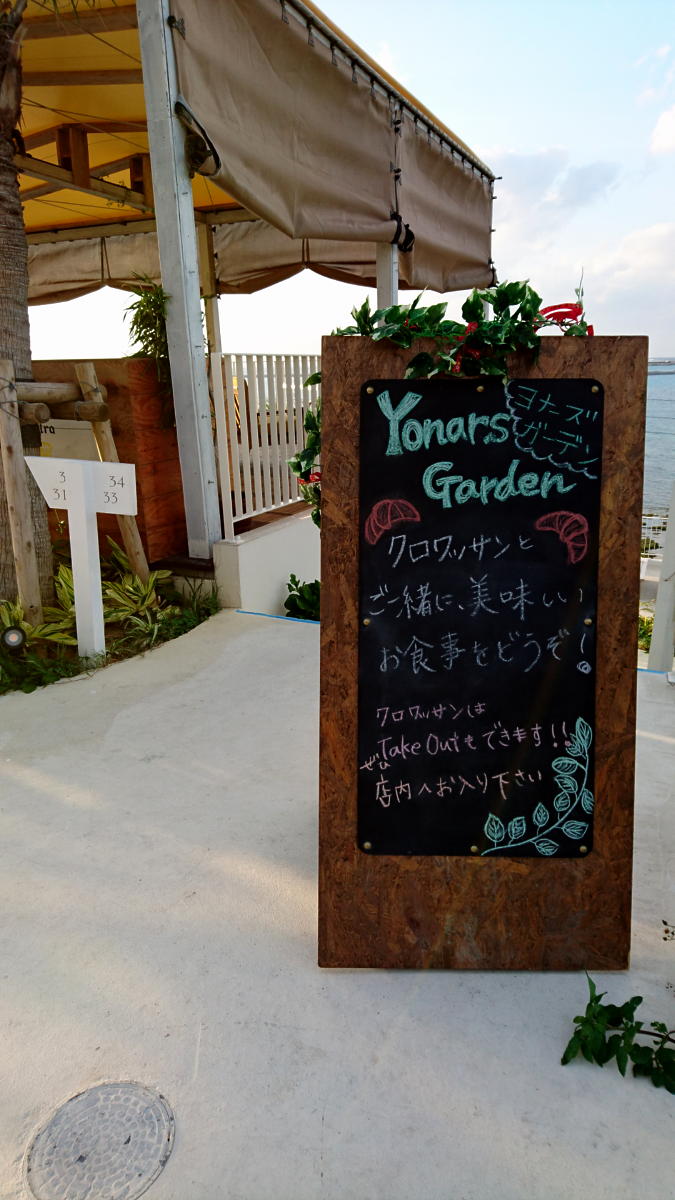 Yonars
Garden
ヨナーズ
ガーデン
クロワッサンと
ご一緒に、美味しい
お食事をどうぞ!
クロワッサンは
Take Outもできます!!
ぜひ
店内へお入り下さい
3 34
31 33